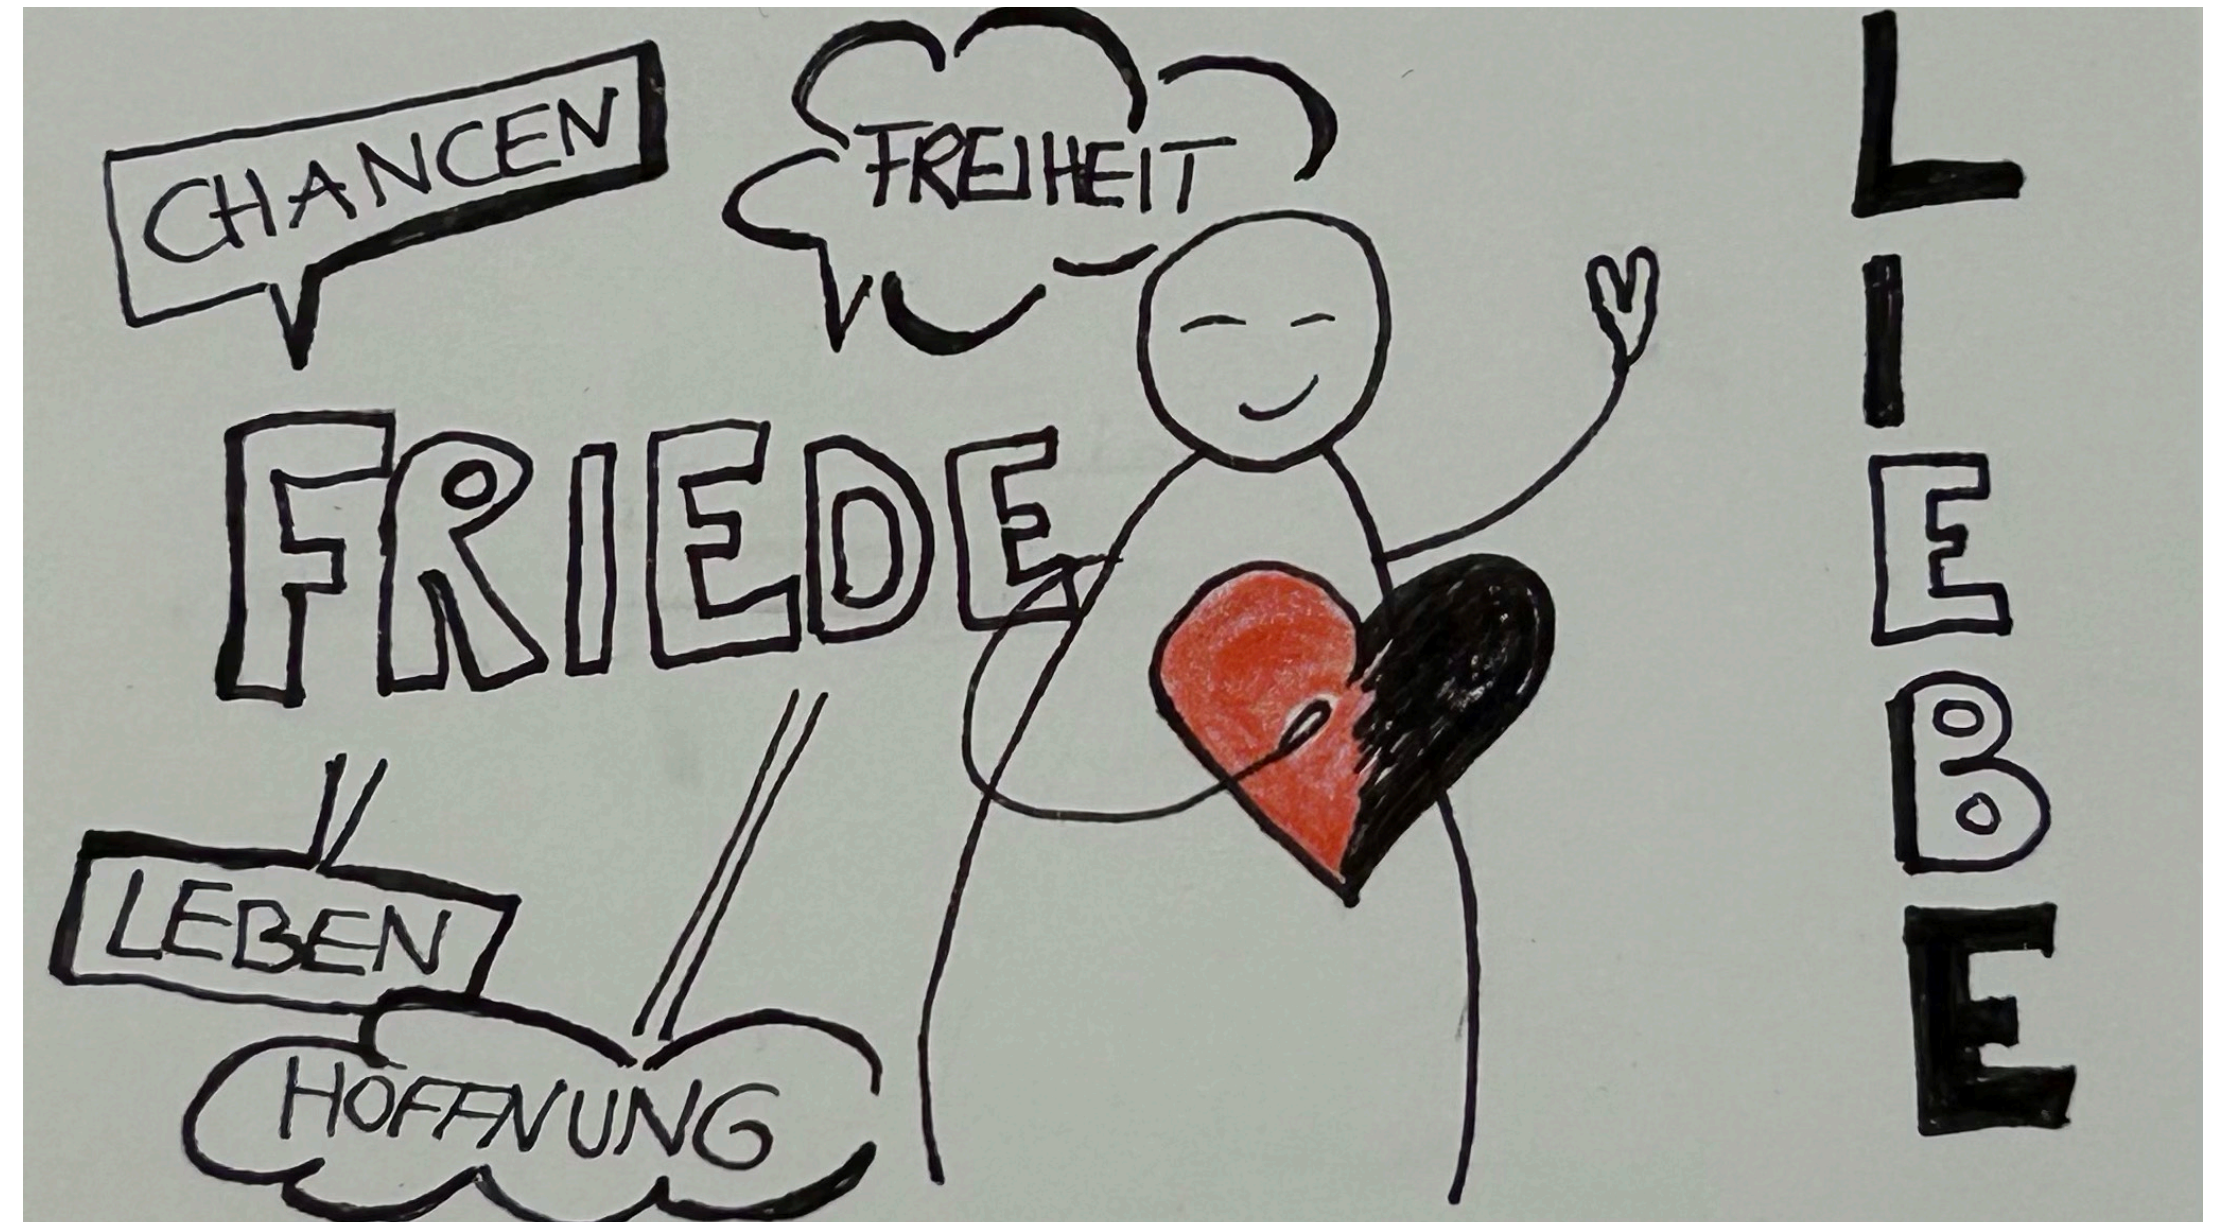 CHANCEN
FREIHEIT
FRIEDE
LEBEN
HOFFNUNG
LIEBE